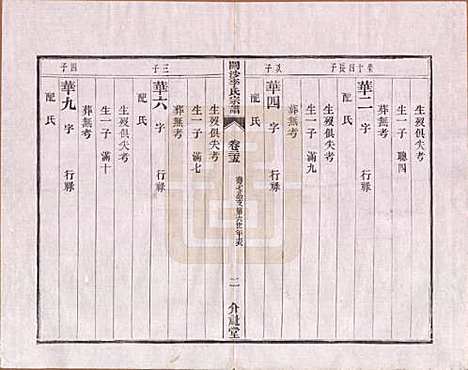 榮十四長子
華二 字 行祿
配氏
葬無考
生一子 聰四
生歿俱失考
次子
華四 字 行祿
配氏
葬無考
生一子 滿九
生歿俱失考
開沙李氏宗譜
卷三五
二
介祉堂
三子
華六 字 行祿
配氏
葬無考
生一子 滿七
生歿俱失考
四子
華九 字 行祿
配氏
葬無考
生一子 滿十
生歿俱失考